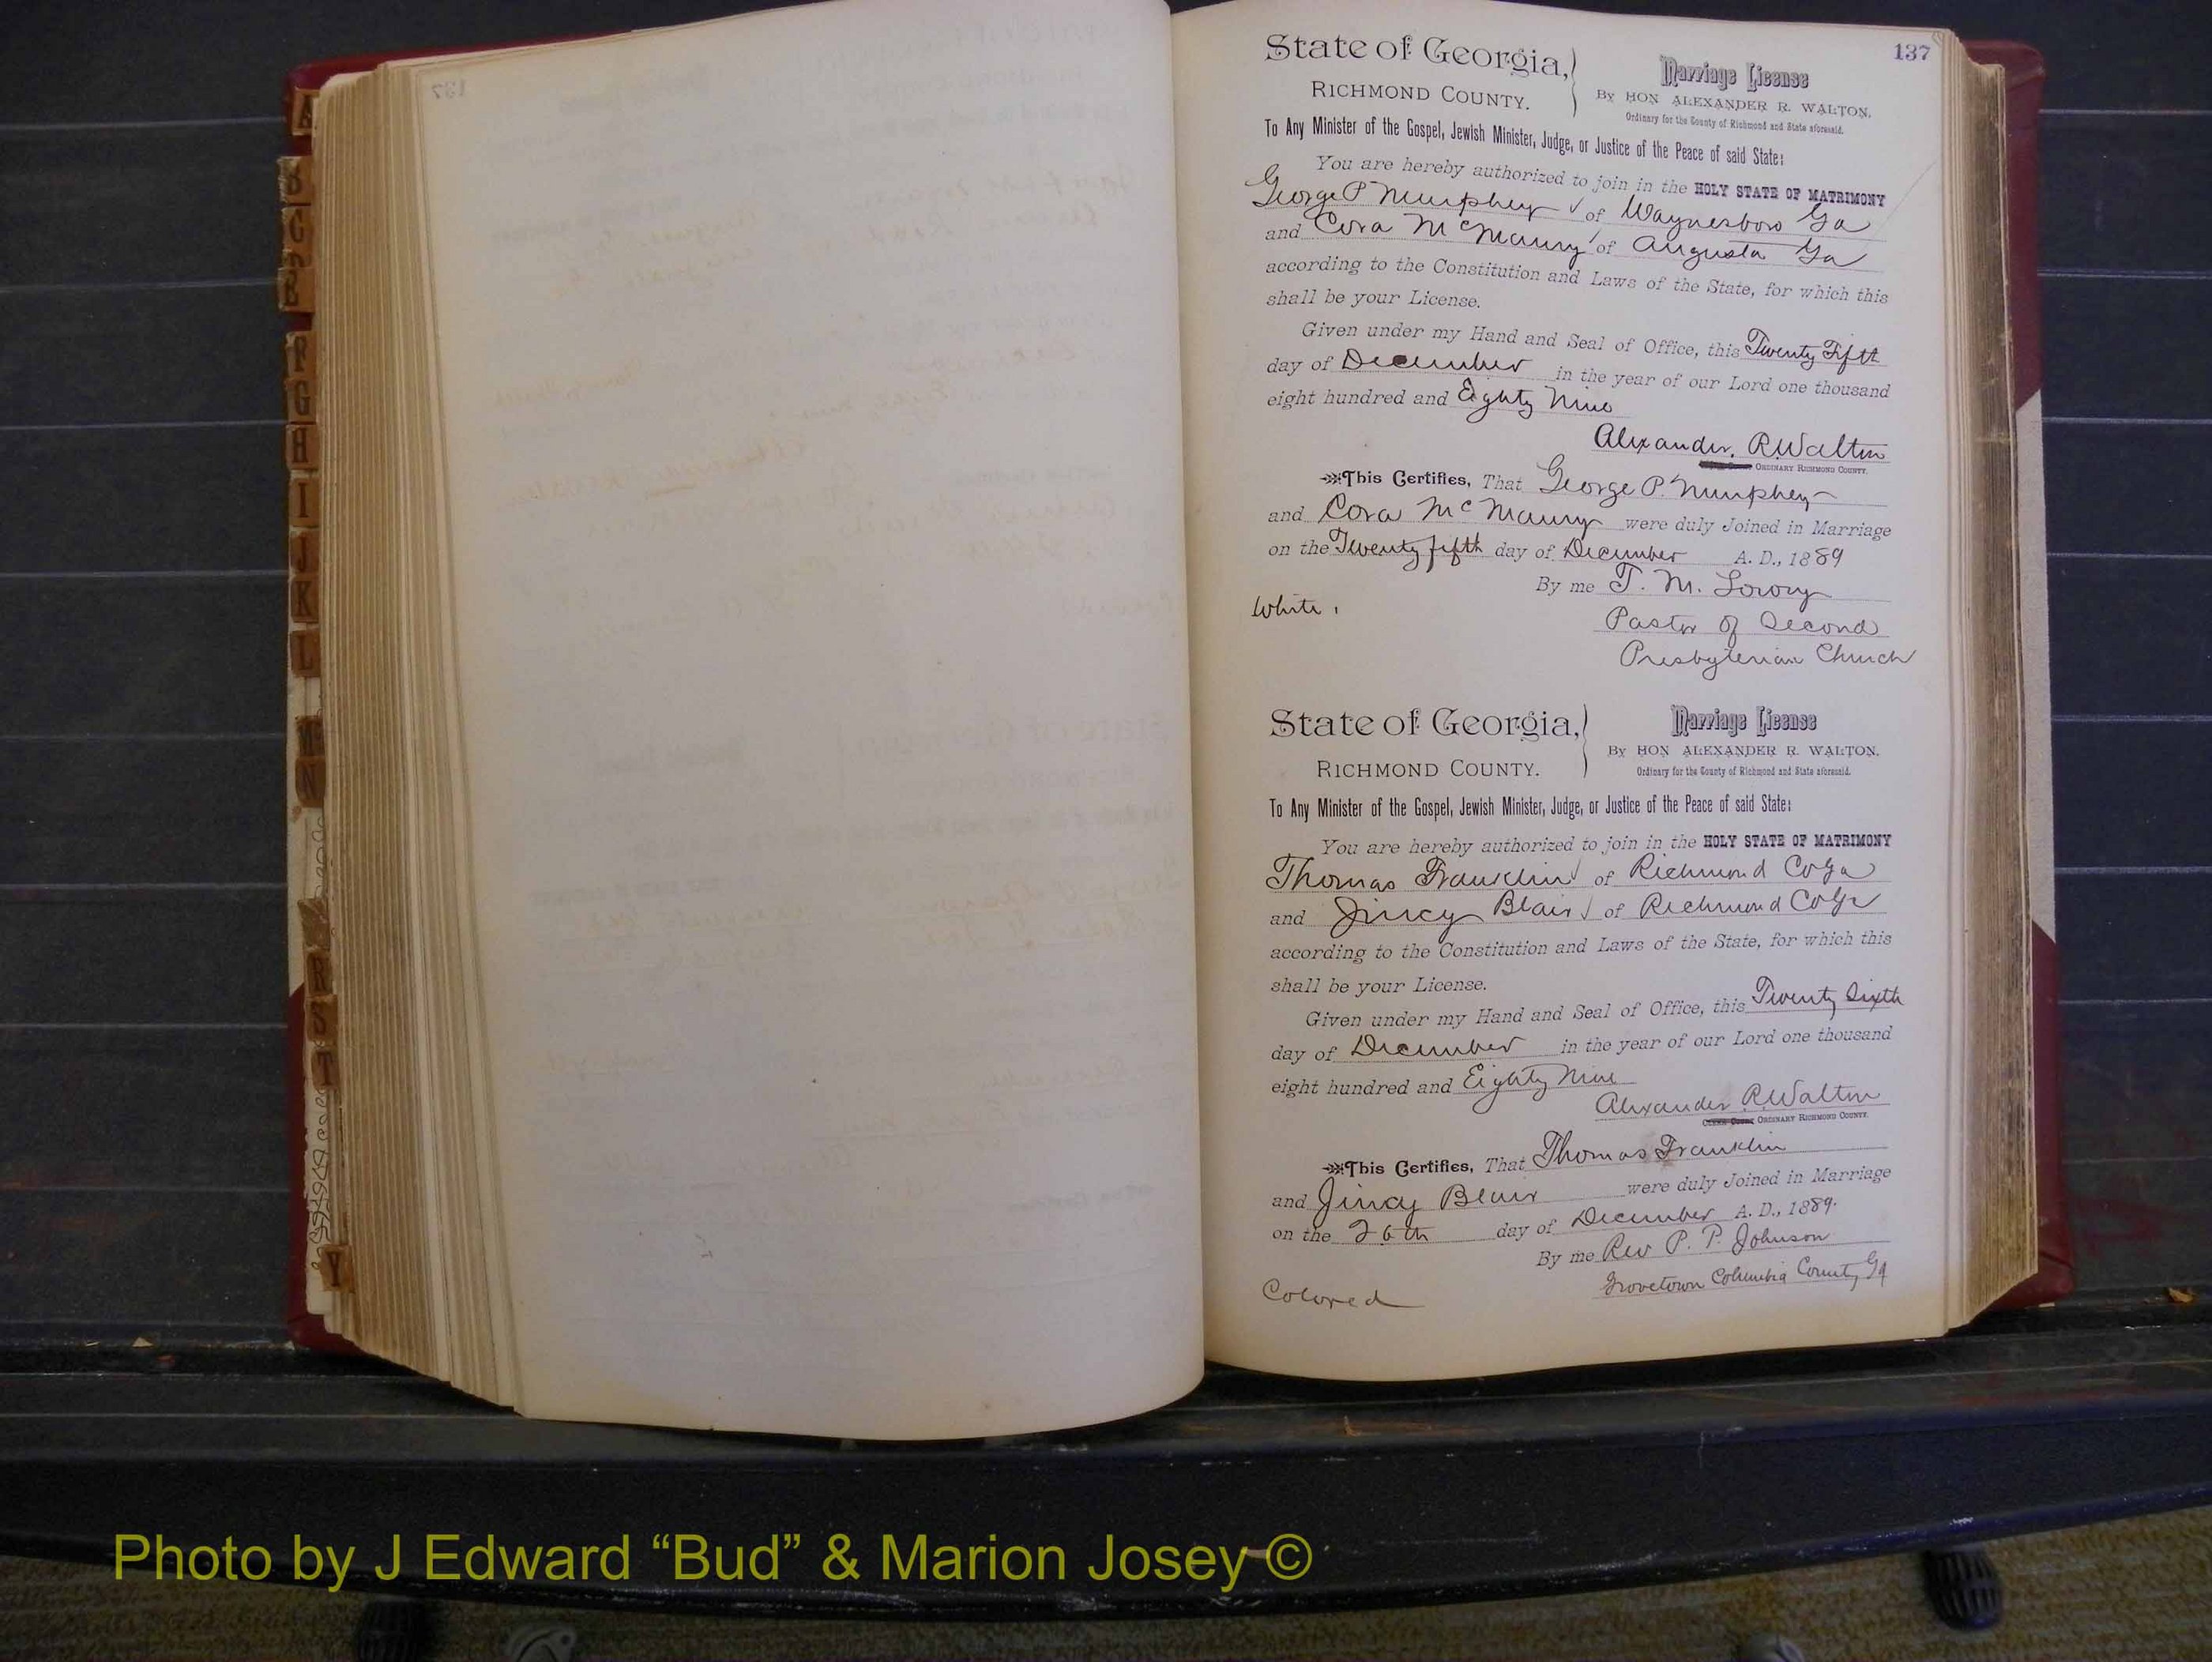 137
State of Georgia,
RICHMOND COUNTY.
Marriage License
By HON ALEXANDER R. WALTON,
Ordinary for the County of Richmond and State aforesaid.
To Any Minister of the Gospel, Jewish Minister, Judge, or Justice of the Peace of said State:
You are hereby authorized to join in the HOLY STATE OF MATRIMONY
George P Murphey of Waynesboro Ga
and Cora McMaury of Augusta Ga
according to the Constitution and Laws of the State, for which this
shall be your License.
Given under my Hand and Seal of Office, this Twenty Fifth
day of December in the year of our Lord one thousand
eight hundred and Eighty Nine
Alexander R Walton
ORDINARY RICHMOND COUNTY.
This Certifies, That George P. Murphey
and Cora McMaury were duly Joined in Marriage
on the Twenty fifth day of December A. D., 1889
By me T. M. Lowry
White.
Pastor of Second
Presbyterian Church
State of Georgia,
RICHMOND COUNTY.
Marriage License
By HON ALEXANDER R. WALTON,
Ordinary for the County of Richmond and State aforesaid.
To Any Minister of the Gospel, Jewish Minister, Judge, or Justice of the Peace of said State:
You are hereby authorized to join in the HOLY STATE OF MATRIMONY
Thomas Franklin of Richmond Co Ga
and Jincy Blair of Richmond Co Ga
according to the Constitution and Laws of the State, for which this
shall be your License.
Given under my Hand and Seal of Office, this Twenty Sixth
day of December in the year of our Lord one thousand
eight hundred and Eighty Nine
Alexander R. Walton
ORDINARY RICHMOND COUNTY.
This Certifies, That Thomas Franklin
and Jincy Blair were duly Joined in Marriage
on the 26th day of December A. D., 1889.
By me Rev P. P. Johnson
Grovetown Columbia County Ga
Colored
A
B
C
F
G
H
I
J
K
L
M
N
R
S
T
Y
Photo by J Edward “Bud” & Marion Josey ©